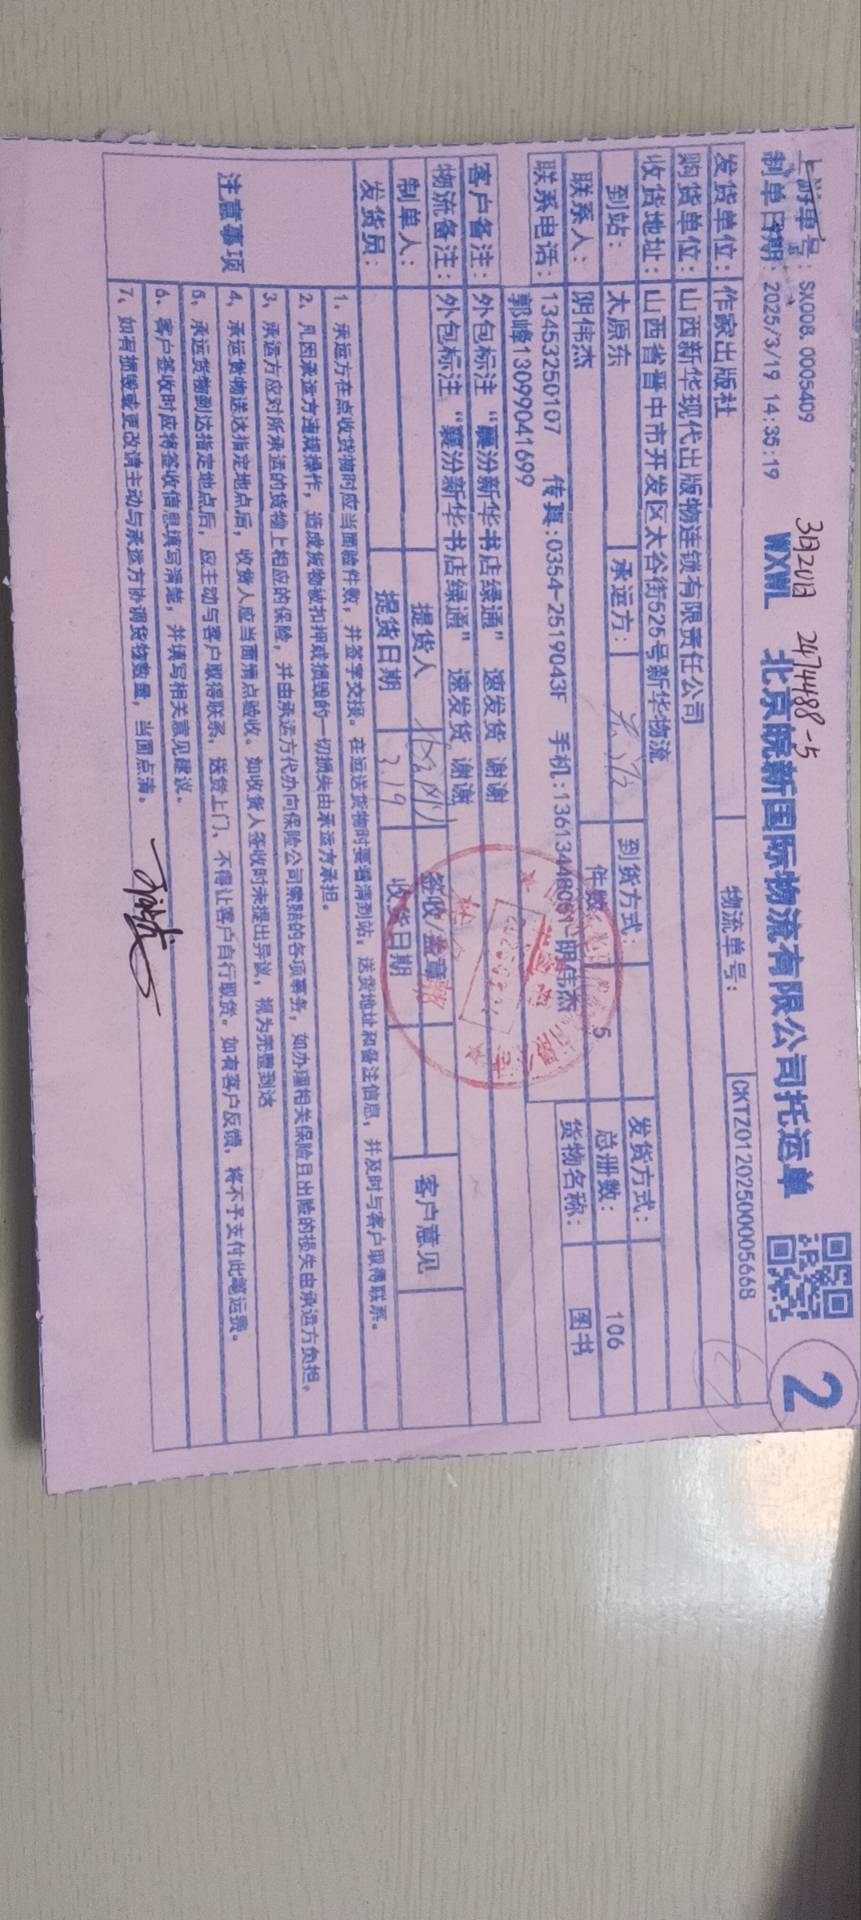 上游单号: SX008.0005409
3月20日 2474488-5
制单日期: 2025/3/19 14:35:19
WXWL 北京皖新国际物流有限公司托运单
2
发货单位: 作家出版社 物流单号: CKTZ01202500005668
购货单位: 山西新华现代出版物连锁有限责任公司
收货地址: 山西省晋中市开发区太谷街525号新华物流
到站: 太原东 承运方: 到货方式: 发货方式:
联系人: 阴伟杰 件数: 5 总册数: 106
联系电话: 13453250107 传真:0354-2519043F 手机: 阴伟杰 货物名称: 图书
郭峰13099041699
客户备注: 外包标注“襄汾新华书店绿通” 速发货 谢谢
物流备注: 外包标注“襄汾新华书店绿通” 速发货 谢谢
制单人: 提货人 签收/盖章 客户意见
发货员: 提货日期 3.19 收货日期
注意事项
1、承运方在点收货物时应当面验件数,并签字交接。在运送货物时要看清到站、送货地址和备注信息,并及时与客户取得联系。
2、凡因承运方违规操作,造成货物被扣押或损毁的一切损失由承运方承担。
3、承运方应对所承运的货物上相应的保险,并由承运方代办向保险公司索赔的各项事务,如办理相关保险且出险的损失由承运方负担。
4、承运货物送达指定地点后,收货人应当面清点验收。如收货人签收时未提出异议,视为完整到达
5、承运货物到达指定地点后,应主动与客户取得联系,送货上门、不得让客户自行取货。如有客户反馈,将不予支付此笔运费。
6、客户签收时应将签收信息填写清楚,并填写相关意见建议。
7、如有损毁或更改请主动与承运方协调货物数量,当面点清。